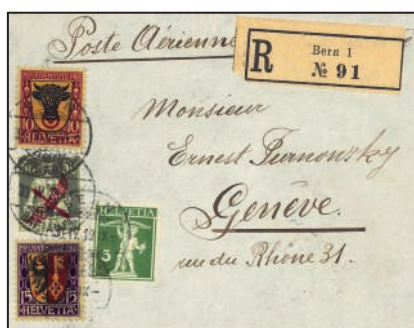 Poste Aérienne
R
Bern 1
№ 91
Monsieur
Ernest
Genève.
rue du Rhône 31.
10 10
HELVETIA
HELVETIA
5
15 15
HELVETIA